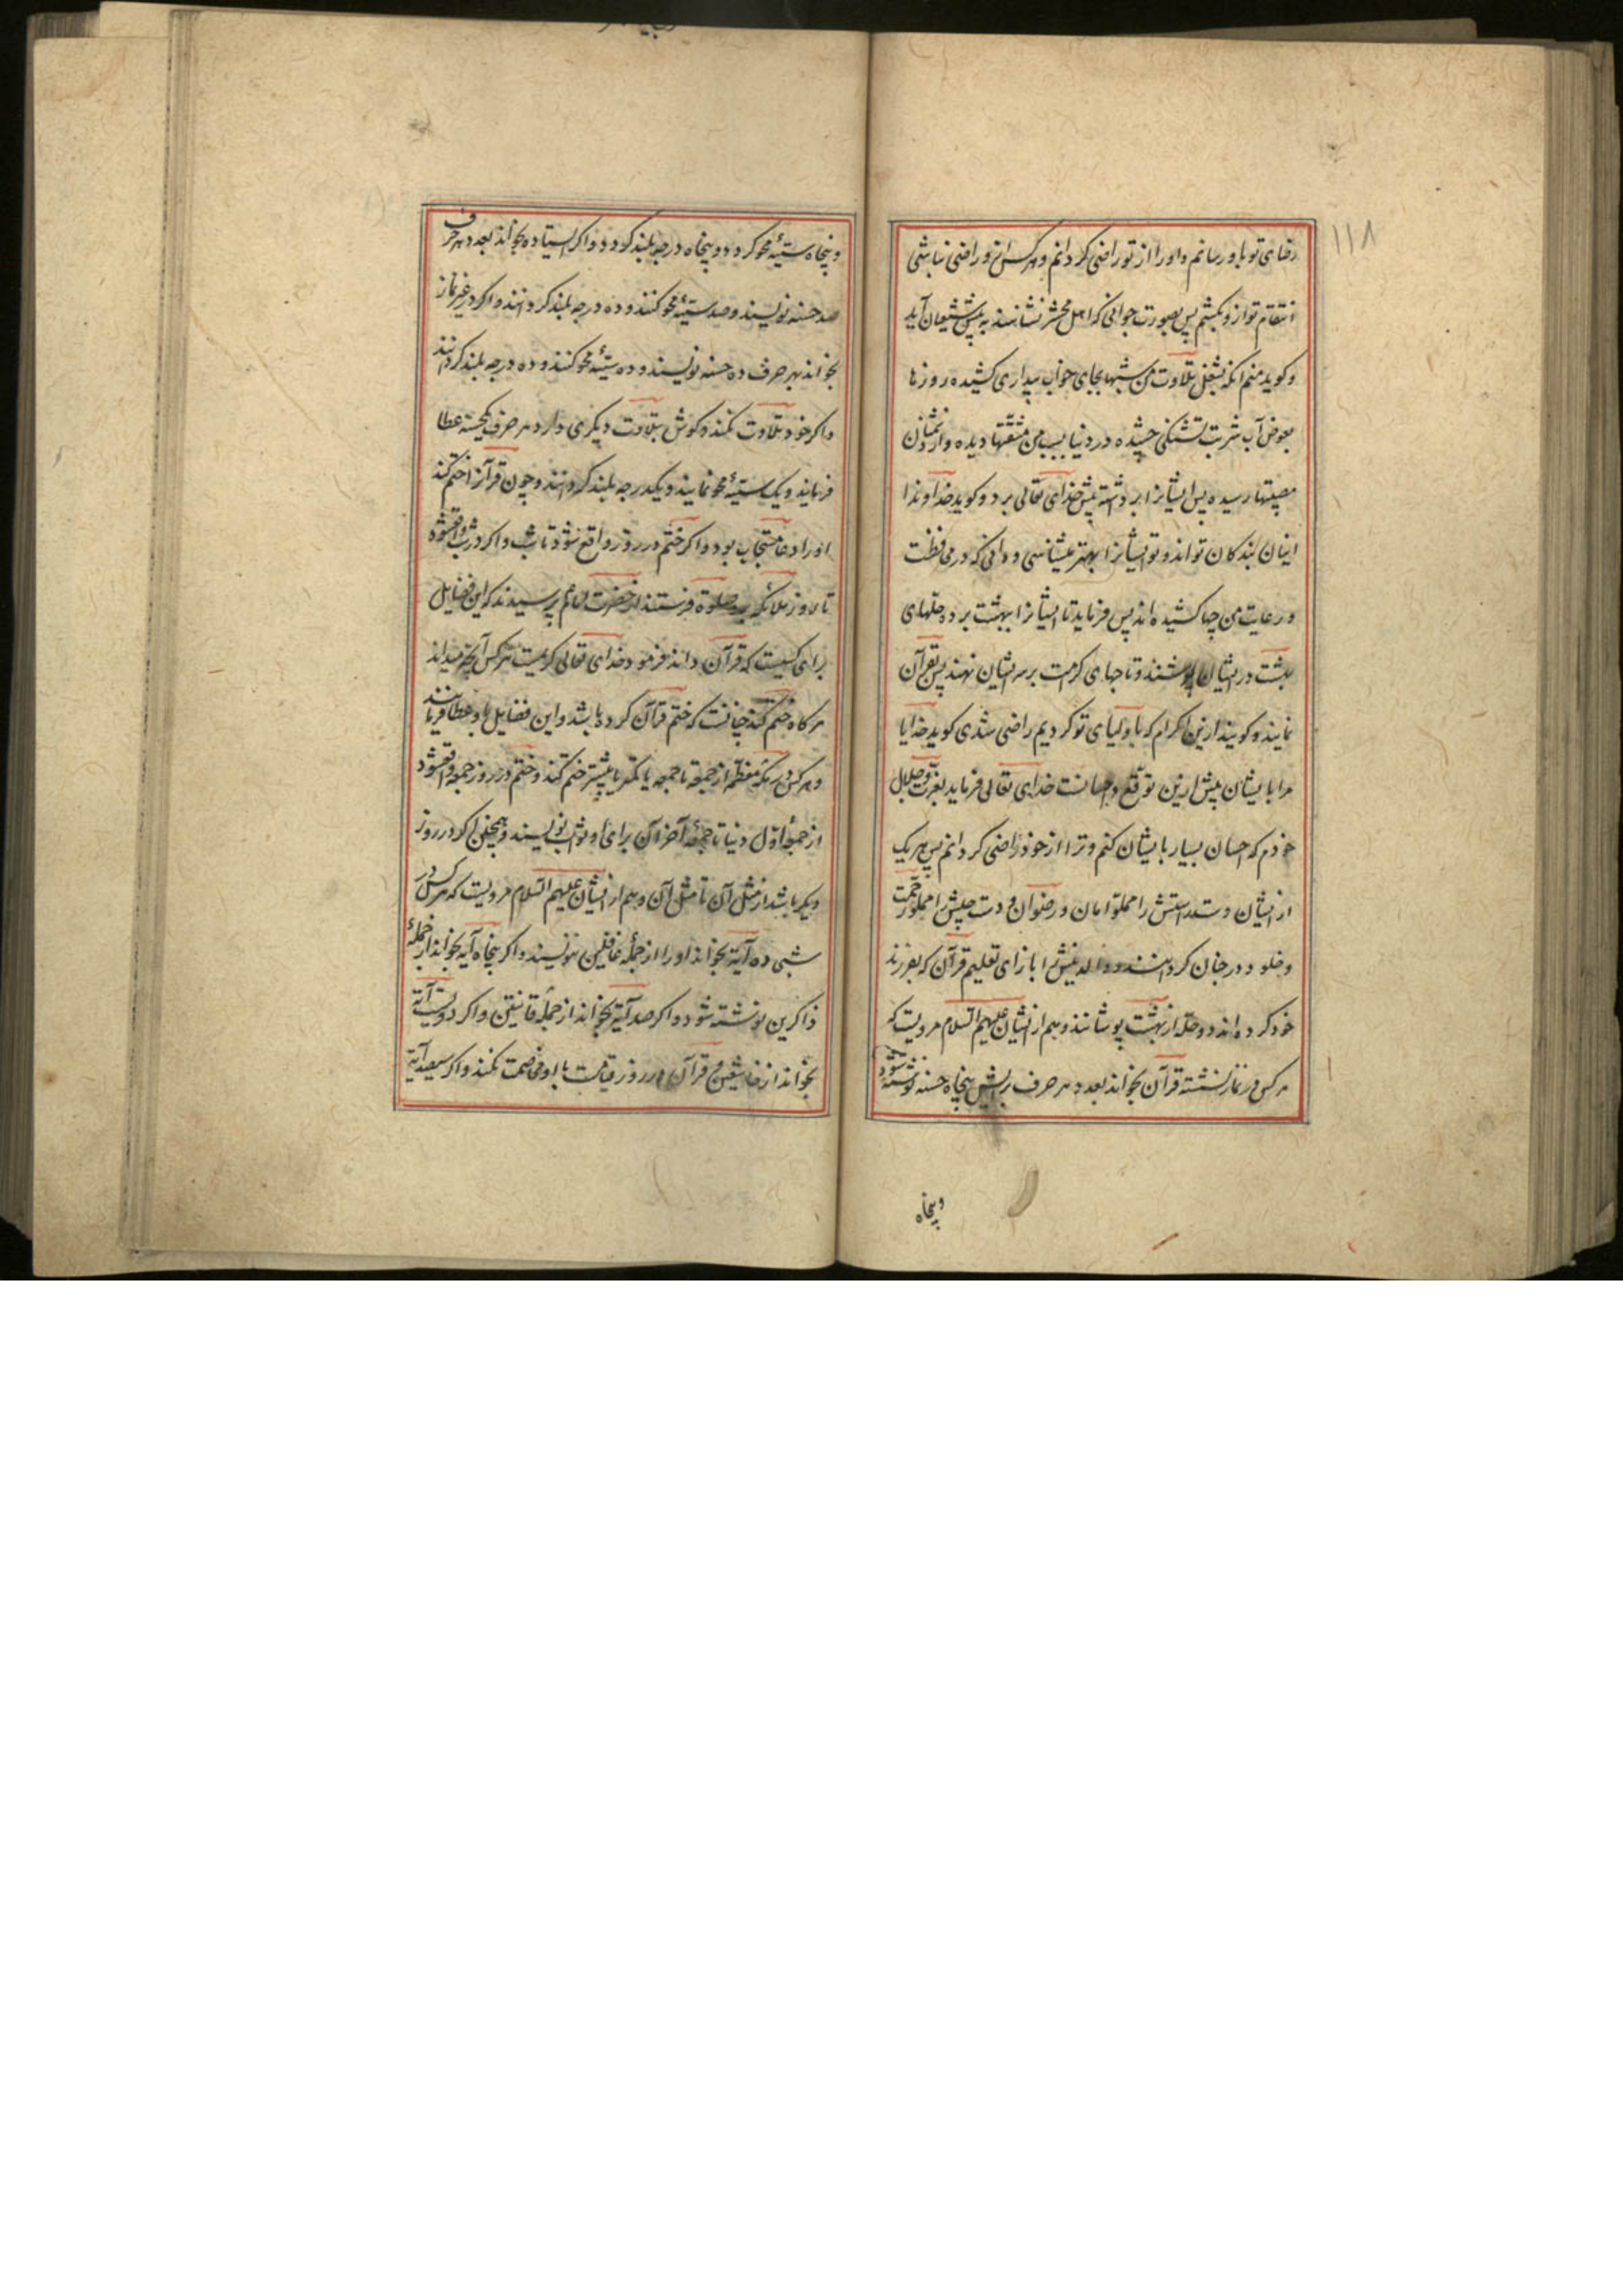 ۱۱۸
رضای تو باو رسانم و او را از تو راضی کردانم و هر کس از و راضی نباشی
انتقام تو از و بکشم پس بصورت جوانی که اهل محشر نشناسند به پیش شیعیان آید
و کوید منم انکه بشغل تلاوت من شبها بجای خواب بیداری کشیده روزها
بعوض آب شربت تشنکی چشیده در دنیا بسبب من مشقتها دیده و از دشمنان
مصیبتها رسیده پس ایشانرا بر داشته پیش خدای تعالی برد و کوید خداوندا
اینان بندکان تو اند و تو ایشانرا بهتر میشناسی و دانی که در محافظت
و رعایت من چها کشیده اند پس فرماید تا ایشانرا ببهشت برده حلهای
بهشت در ایشان پوشند و تاجهای کرامت بر سر ایشان نهند پس بقرآن
نمایند و کویند ازین اکرام که باولیای تو کردیم راضی شدی کوید خدایا
مرا با یشان بیش ازین توقع احسانست خدای تعالی فرماید بعزت و جلال
خودم که احسان بسیار با یشان کنم و ترا از خود راضی کردانم پس هر یک
از ایشان دست راستش را مملو امان و رضوان و دست چپش را مملو رحمت
و خلود در جنان کردانند و والدینش را بازای تعلیم قرآن که بفرزند
خود کرده اند دو حله از بهشت پوشانند و هم از ایشان علیهم السلام مرویست که
هر کس در نماز نشسته قرآن بخواند بعدد هر حرف برایش پنجاه حسنه نوشته شود
و پنجاه
و پنجاه سیئه محو کردد و پنجاه درجه بلند کردد و اکر ایستاده بخواند بعدد هر حرف
صد حسنه نویسند و صد سیئه محو کنند و ده درجه بلند کردانند و اکر در غیر نماز
بخواند بهر حرف ده حسنه نویسند و ده سیئه محو کنند و ده درجه بلند کردانند
و اکر خود تلاوت نکند و کوش بتلاوت دیکری دارد هر حرف یکحسنه عطا
فرمایند و یک سیئه محو نمایند و یکدرجه بلند کردانند و چون قرآنرا ختم کند
او را دعا مستجاب بود و اکر ختم در روز واقع شود تا شب و اکر در شب واقع شود
تا روز ملائکه صلوة فرستند از حضرت امام پرسیدند که این فضایل
برای کیست که قرآن داند فرمود خدای تعالی کریمست هر کس آنچه میداند
هر کاه ختم کند چنانست که ختم قرآن کرده باشد و این فضایل باو عطا فرمایند
و هر کس در مکه معظمه از جمعه تا جمعه یا کمتر یا بیشتر ختم کند و ختم در روز جمعه واقع شود
از جمعه اول دنیا تا جمعه آخر آن برای او ثواب نویسند و همچنین اکر در روز
دیکر باشد از مثل آن تا مثل آن و هم از ایشان علیهم السلام مرویست که هر کس در
شبی ده آیة بخواند او را از جمله غافلین ننویسند و اکر پنجاه آیه بخواند از جمله
ذاکرین نوشته شود و اکر صد آیة بخواند از جمله قانتین و اکر دویست آیة
بخواند از خاشعین و قرآن در روز قیامت با او مخاصمت نکند و اکر سیصد آیة